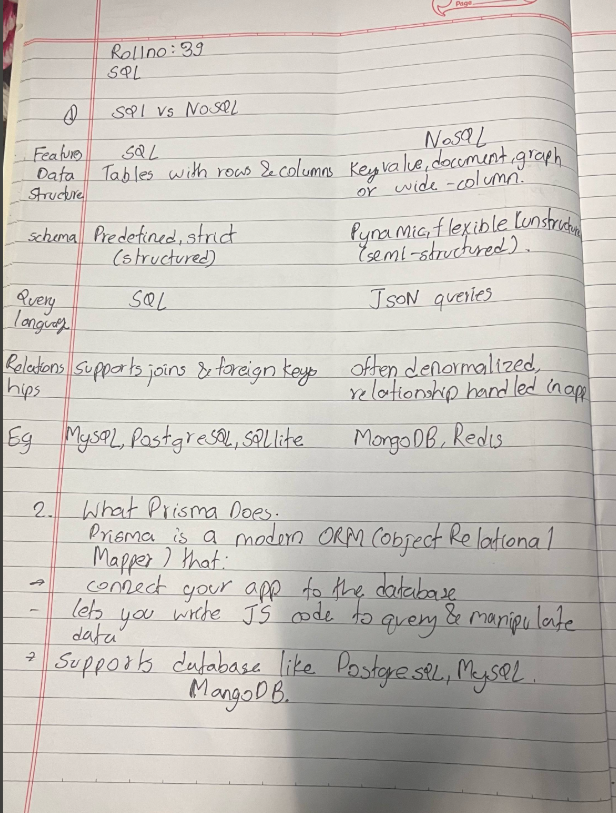 Page
Rollno: 39
SQL
① SQl vs NoSQL
Feature SQL NoSQL
Data Structure Tables with rows & columns Keyvalue, document, graph
or wide-column.
schema Predefined, strict Dynamic, flexible (unstructu
(structured) (semi-structured).
Query SQL JSON queries
language
Relations supports joins & foreign keys often denormalized,
hips relationship handled in app
Eg MySQL, PostgreSQL, SQLlite MongoDB, Redis
2. What Prisma Does.
Prisma is a modern ORM (object Relational
Mapper) that:
→ connect your app to the database
- lets you write JS code to query & manipulate
data
→ Supports database like PostgreSQL, MySQL.
MangoDB.